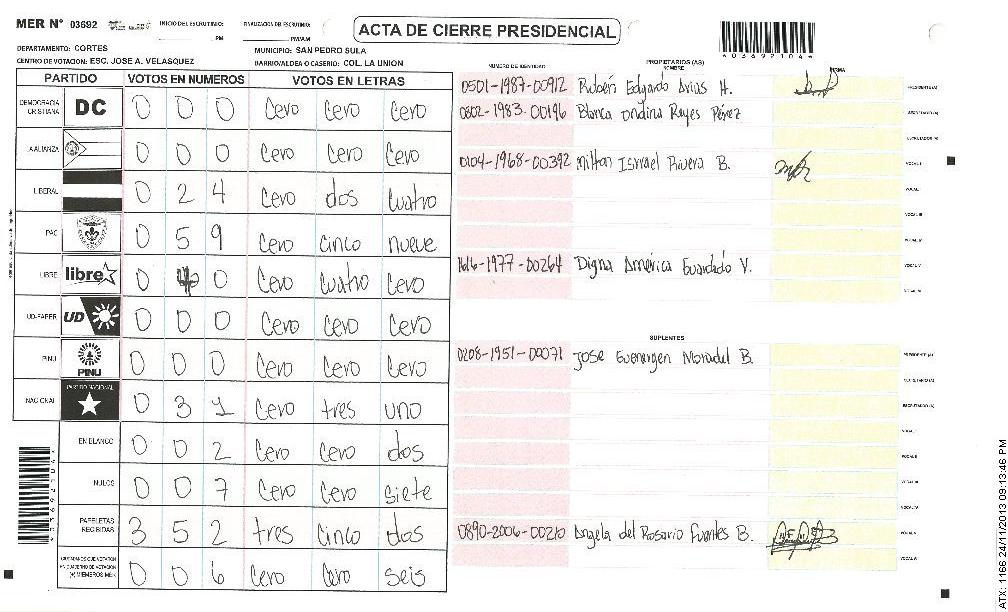 MER N° 03692 INICIO DEL ESCRUTINIO: FINALIZACION DE ESCRUTINIO: ACTA DE CIERRE PRESIDENCIAL
PM PM/AM
DEPARTAMENTO: CORTES MUNICIPIO: SAN PEDRO SULA
CENTRO DE VOTACION: ESC. JOSE A. VELASQUEZ BARRIO/ALDEA O CASERIO: COL. LA UNION
PARTIDO VOTOS EN NUMEROS VOTOS EN LETRAS
DEMOCRACIA CRISTIANA DC 0 0 0 Cero Cero Cero
LA ALIANZA 0 0 0 Cero Cero Cero
LIBERAL 0 2 4 Cero dos Cuatro
PAC 0 5 9 Cero Cinco nueve
LIBRE libre 0 4 0 Cero Cuatro Cero
UD-FAPER UD 0 0 0 Cero Cero Cero
PINU PINU 0 0 0 Cero Cero Cero
NACIONAL PARTIDO NACIONAL 0 3 1 Cero tres uno
EN BLANCO 0 0 2 Cero Cero dos
NULOS 0 0 7 Cero Cero siete
PAPELETAS RECIBIDAS 3 5 2 tres Cinco dos
CIUDADANOS QUE VOTARON EN CUADERNO DE VOTACION (+) MIEMBROS MER 0 0 6 Cero Cero seis
03692104
NUMERO DE IDENTIDAD PROPIETARIOS (AS) NOMBRE FIRMA
0501-1987-00912 Rubén Edgardo Arias H. PRESIDENTE (A)
0802-1983-00196 Blanca ondina Reyes Pérez SECRETARIO (A)
ESCRUTADOR (A)
0104-1968-00392 Milton Ismael Rivera B. VOCAL I
VOCAL II
VOCAL III
VOCAL IV
1616-1977-00264 Digna América Guardado V. VOCAL V
SUPLENTES
0208-1951-00071 Jose Guenergen Moradel B. PRESIDENTE (A)
SECRETARIO (A)
ESCRUTADOR (A)
VOCAL I
VOCAL II
VOCAL III
VOCAL IV
0890-2006-00210 Angela del Rosario Fuentes B. VOCAL V
ATX: 1166 24/11/2013 09:13:46 PM